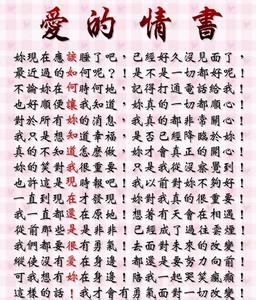 愛的情書
妳現在應該睡了吧，已經好久沒見面了，
最近過的如何呢？！是不是一切都好呢！
不論妳在何時何地，記得打通電話給我！
也好順便讓我知道，妳真的一切都順心！
對於所有妳的消息，我真的都非常關心！
我只是想知道幸福，是否已經降臨於妳
真的不知道怎麼做，妳才會真正的開心！
妳的笑對我很重要！我只是從沒察覺到
也許這是現時報吧！我以前對妳不夠好
一直到現在還愛妳！妳對我真的很重要！
我一直都還在原地！想著有天會在相遇！
從前那些是非 已經成了過往雲煙！
我們都要很有勇氣！去面對未來的改變！
縱使沒有愛在身邊！也要 努力向前！
可我想有妳在身邊！陪我一起哭笑瘋癲！
這樣的話！我才會有勇氣面對一切改變！